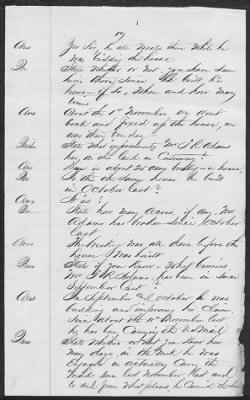 17
Ans Yes Sir, he did sleep there while he
was building the house
Qn State whether or not you have seen
him there since he built his
house - if so, when and how many
times
Ans About the 1st November he went
back and fixed up the house, he
was there one day -
Qn State what improvements Mr J R Adams
has, on the land in Controversy?
Ans
Qn Is the same house he built
in October last?
Ans It is!
Qn State how many acres, if any, Mr
Adams has broken since October
last
Ans The breaking was all done before the
house was built
Qn State if you know, what business
Mr J R Adams, has been in since
September last?
Ans In September and October he was
building and improving his Claim,
Since about the 11th November last
he has been Carrying the US Mail
Qn State whether or not you know how
many days in the week he was
engaged in actually Carrying the
Mails since last November last and
to and from what places he Carried the